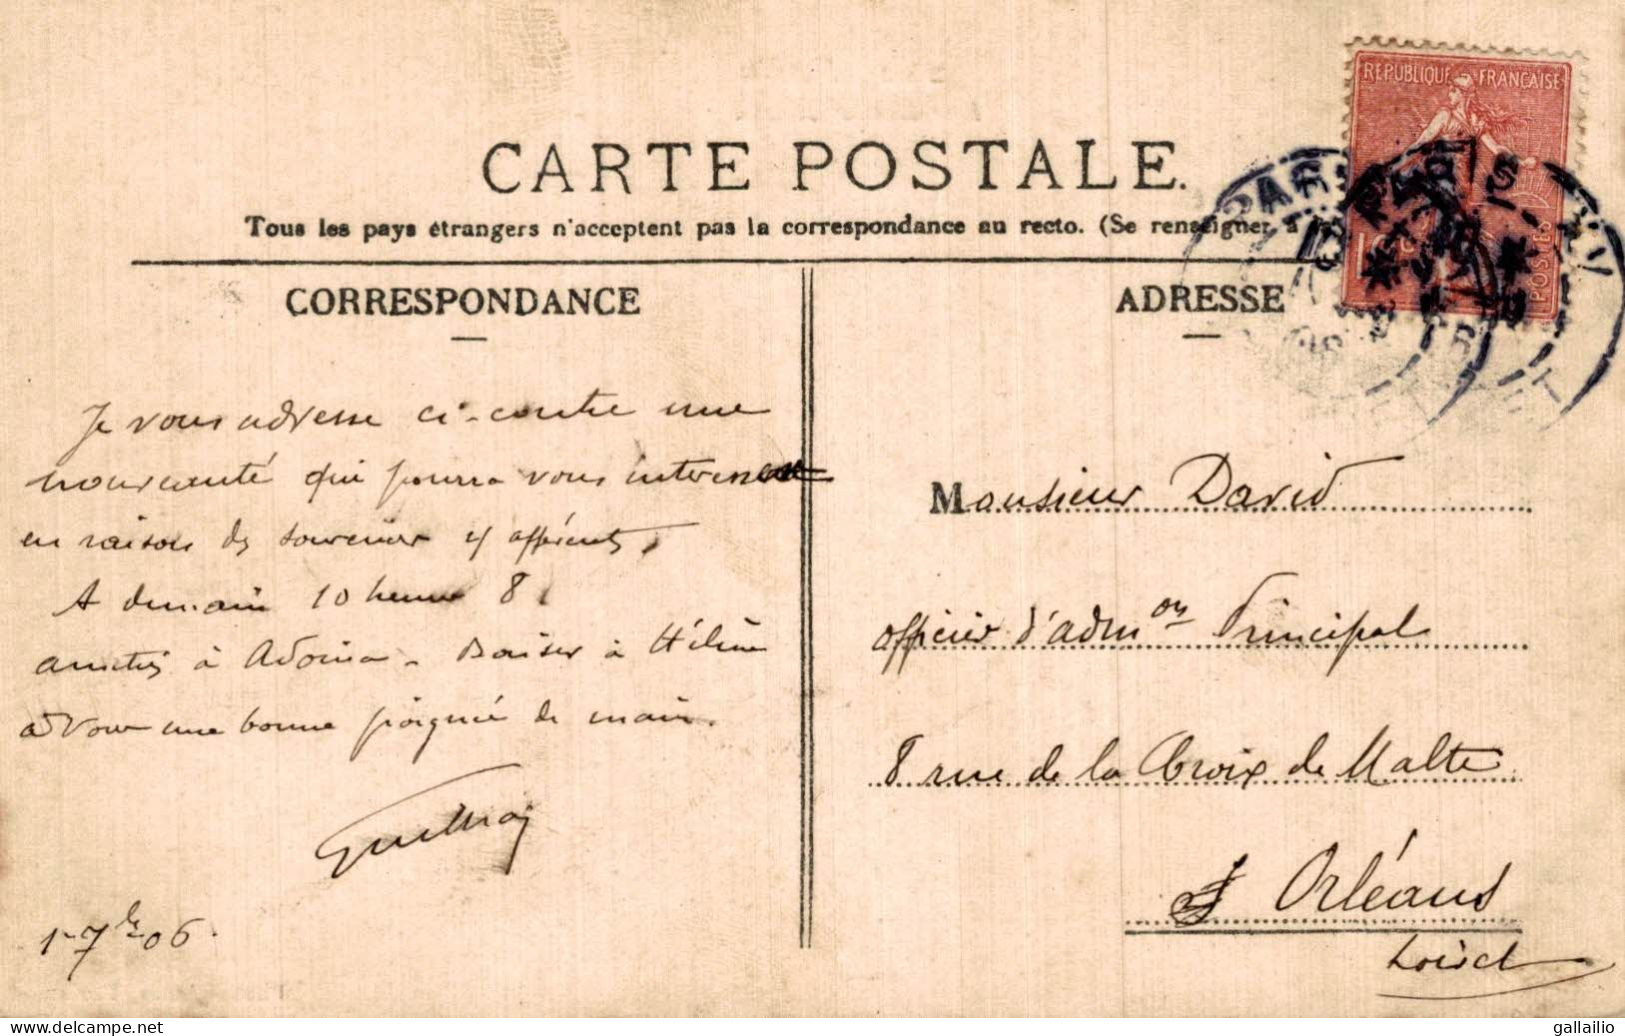 CARTE POSTALE.
Tous les pays étrangers n'acceptent pas la correspondance au recto. (Se renseigner à la
CORRESPONDANCE
ADRESSE
RÉPUBLIQUE FRANÇAISE
POSTES
PARIS
Je vous adresse ci-contre une
nouveauté qui pourra vous intéresser
en raison des souvenirs y afférents,
A demain 10 heures 8
amitiés à Adoina. Baiser à Hélène
à vous une bonne poignée de main.
1-7bre 06.
Monsieur David
officier d'admon Principal
8 rue de la Croix de Malte
Orléans
Loiret
gallailio